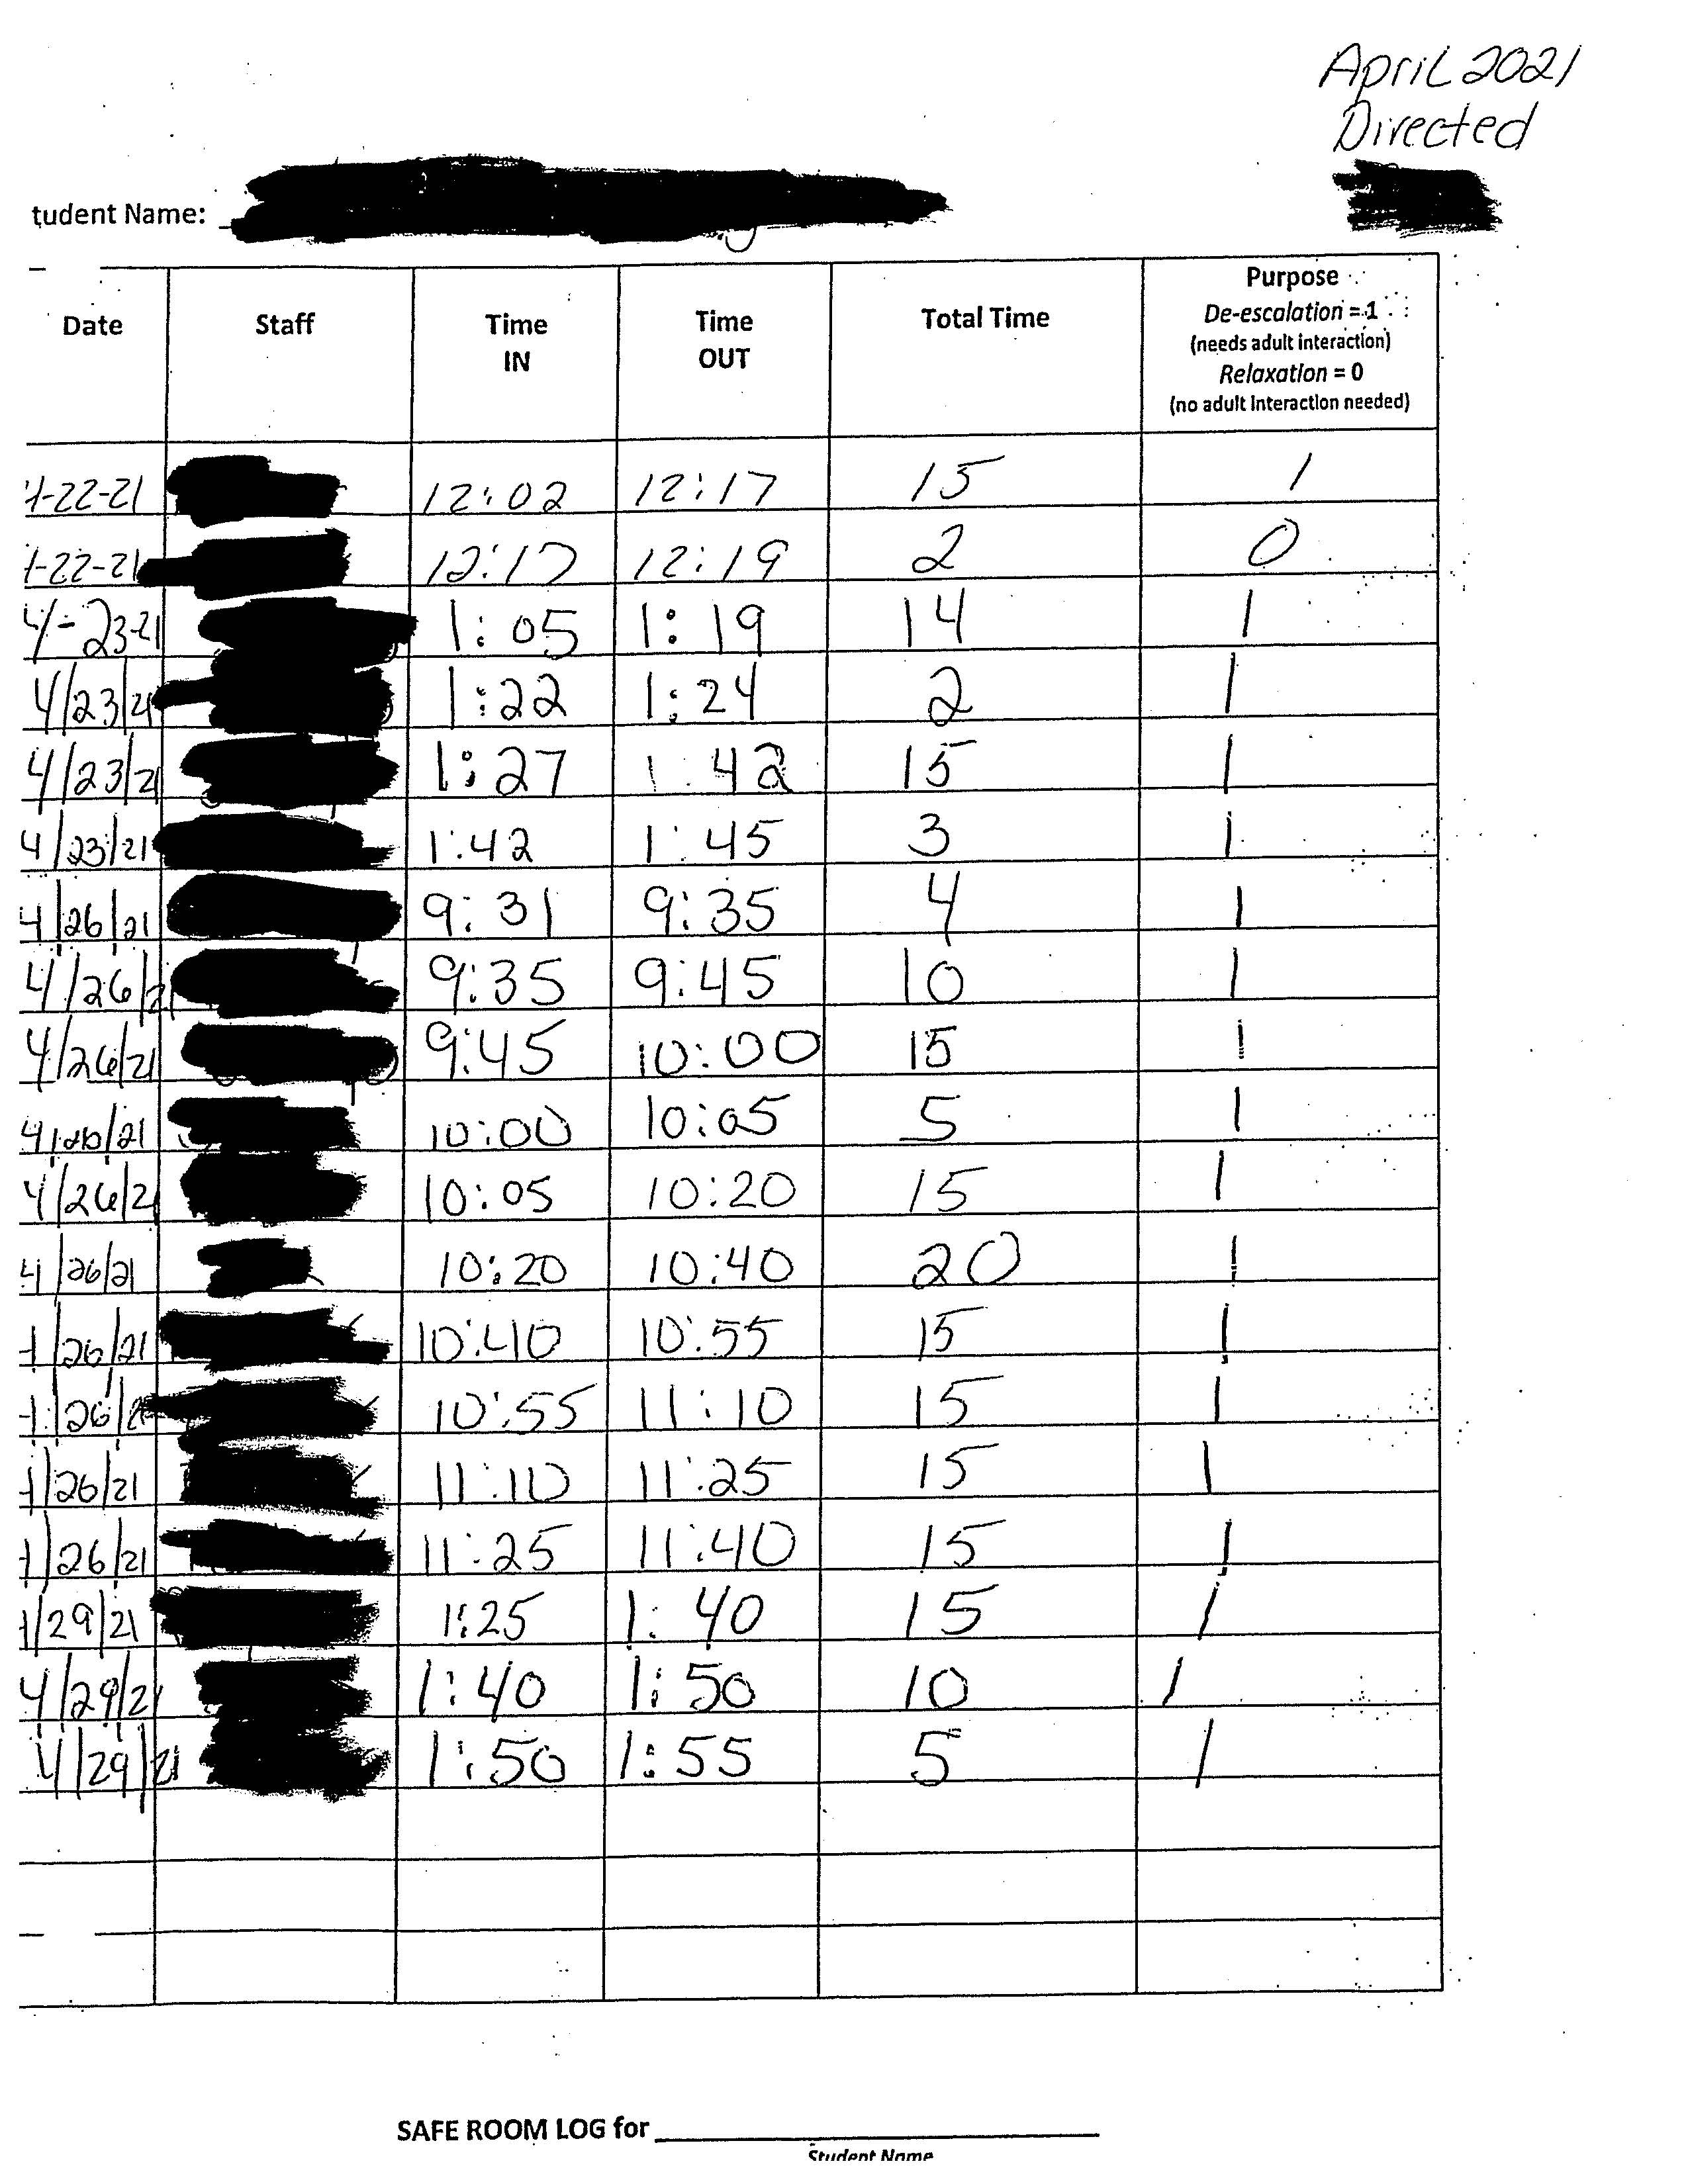 April 2021
Directed
tudent Name:
Date Staff Time IN Time OUT Total Time Purpose
De-escalation = 1
(needs adult interaction)
Relaxation = 0
(no adult interaction needed)
4-22-21 12:02 12:17 15 1
-22-21 12:17 12:19 2 0
4-23-21 1:05 1:19 14 1
4/23/21 1:22 1:24 2 1
4/23/21 1:27 1:42 15 1
4/23/21 1:42 1:45 3 1
4/26/21 9:31 9:35 4 1
4/26/21 9:35 9:45 10 1
4/26/21 9:45 10:00 15 1
4/26/21 10:00 10:05 5 1
4/26/21 10:05 10:20 15 1
4/26/21 10:20 10:40 20 1
4/26/21 10:40 10:55 15 1
4/26/2 10:55 11:10 15 1
4/26/21 11:10 11:25 15 1
4/26/21 11:25 11:40 15 1
4/29/21 1:25 1:40 15 1
4/29/21 1:40 1:50 10 1
4/29/21 1:50 1:55 5 1
SAFE ROOM LOG for
Student Name